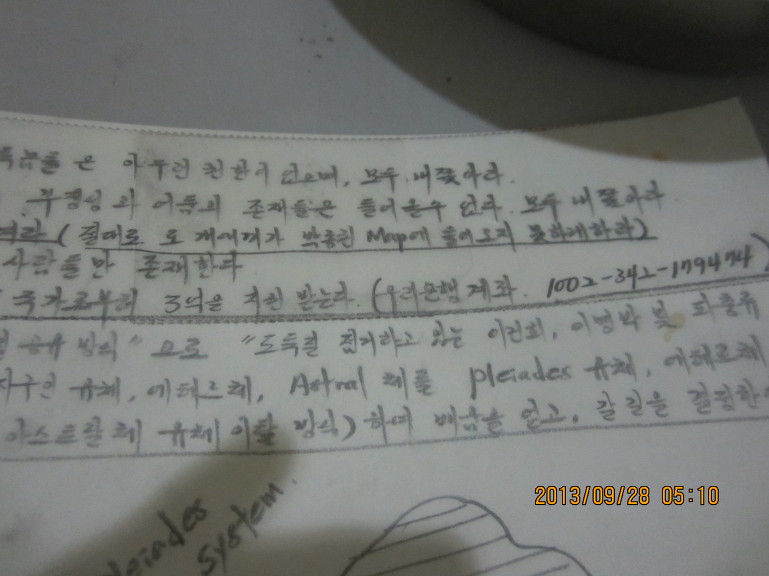 은 아무런 권한이 없으며, 모두 내쫓아라.
부정성과 어둠의 존재들은 들어올수 없다. 모두 내쫓아라
(절대로 도 개예끼가 박종현 Map에 들어오지 못하게하라)
사람들만 존재한다
국가로부터 3억을 지원 받는다. (우리은행계좌. 1002-342-179474)
공유 방식" 으로 "도둑질 점거하고 있는 이건희, 이명박 및 좌중류
지구인 육체, 에테르체, Astral 체를 pleiades 육체, 에테르체
아스트랄체 육체 이탈 방식) 하여 배움을 얻고, 갈 길을 결정한
pleiades
system.
2013/09/28 05:10